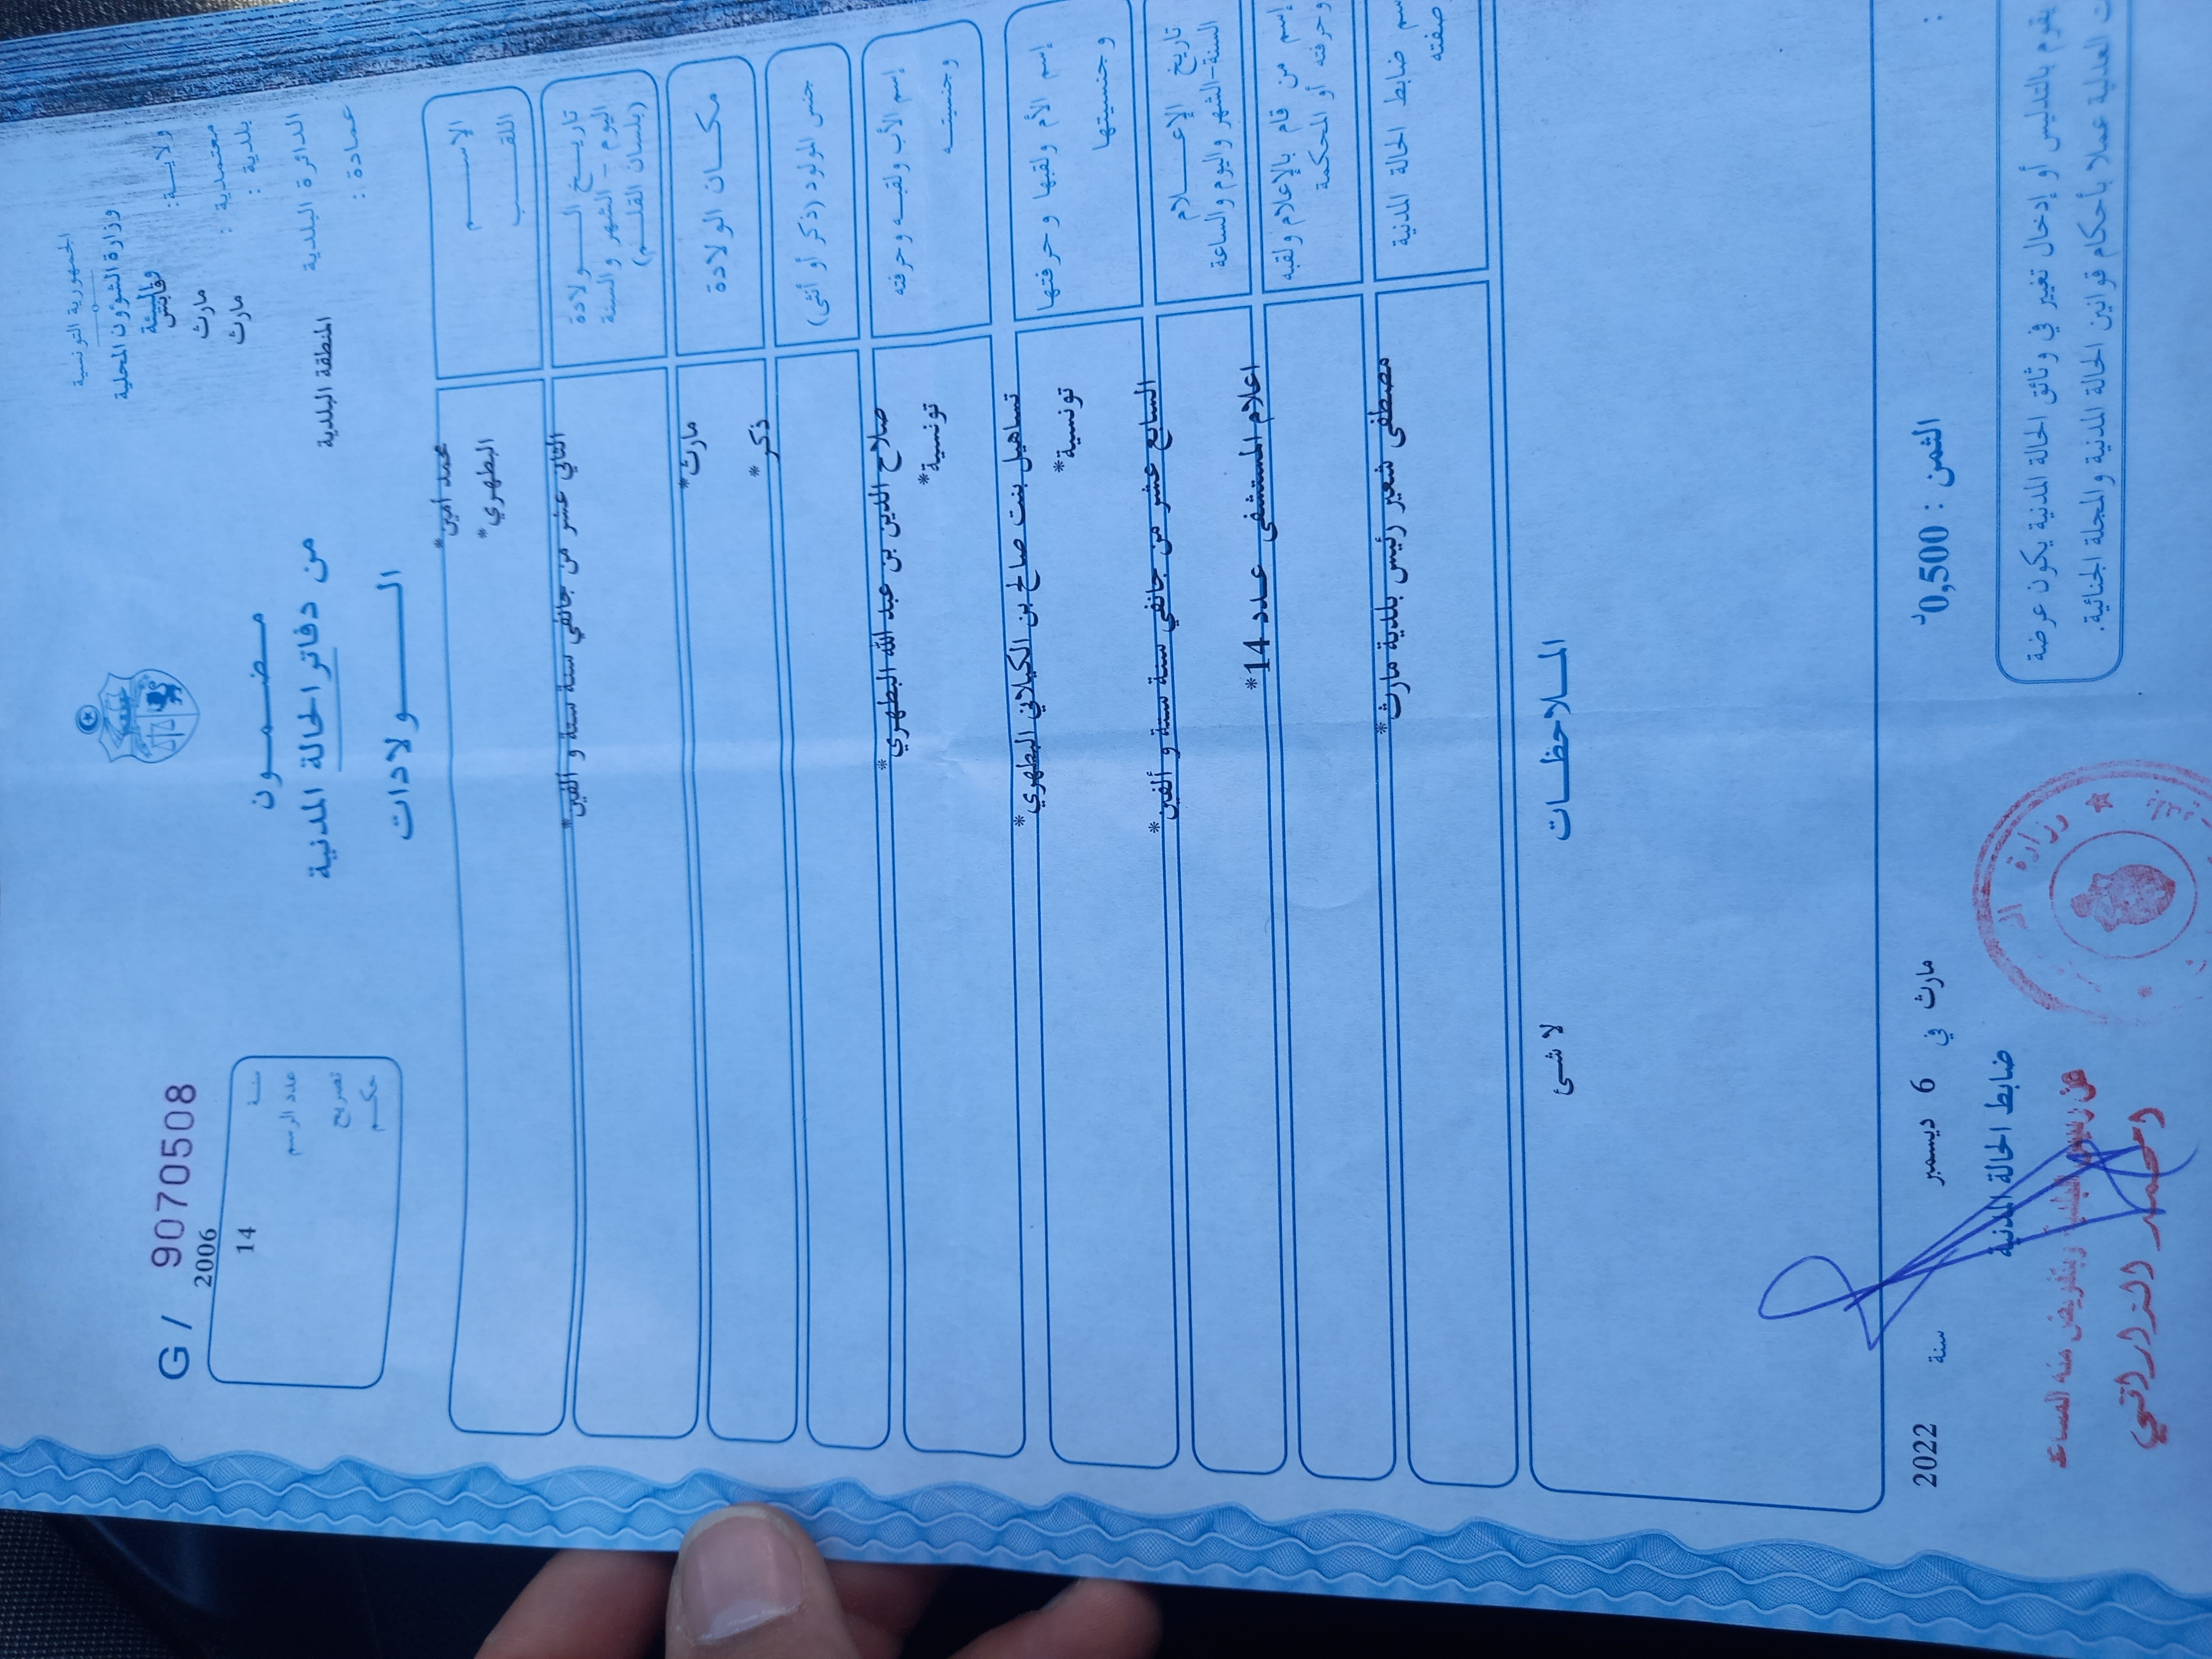 الجمهورية التونسية
وزارة الشؤون المحلية
والبيئة
ولاية : قابس
معتمدية : مارث
بلدية : مارث
الدائرة البلدية
المنطقة البلدية
عمادة :
مضمون
من دفاتر الحالة المدنية
الولادات
G / 9070508
2006
سنة
14
عدد الرسم
تصريح
حكم
الإسم
محمد امين*
اللقب
البطهري*
تاريخ الولادة
اليوم - الشهر والسنة
(بلسان القلم)
الثاني عشر من جانفي سنة ستة و ألفين*
مكان الولادة
مارث*
جنس المولود (ذكر أو أنثى)
ذكر*
إسم الأب ولقبه وحرفته
وجنسيته
صلاح الدين بن عبد الله البطهري*
تونسية*
إسم الأم ولقبها وحرفتها
وجنسيتها
تساهيل بنت صالح بن الكيلاني البطهري*
تونسية*
تاريخ الإعلام
السنة-الشهر واليوم والساعة
السابع عشر من جانفي سنة ستة و ألفين*
إسم من قام بالإعلام ولقبه
وحرفته أو المحكمة
اعلام المستشفى عدد 14*
ضابط الحالة المدنية
صفته
مصطفى شعير رئيس بلدية مارث*
الملاحظات
لا شئ
مارث في 6 ديسمبر سنة 2022
ضابط الحالة المدنية
الثمن : 0,500د
يقوم بالتدليس أو إدخال تغيير في وثائق الحالة المدنية يكون عرضة
العدلية عملا بأحكام قوانين الحالة المدنية والمجلة الجنائية.
وزارة